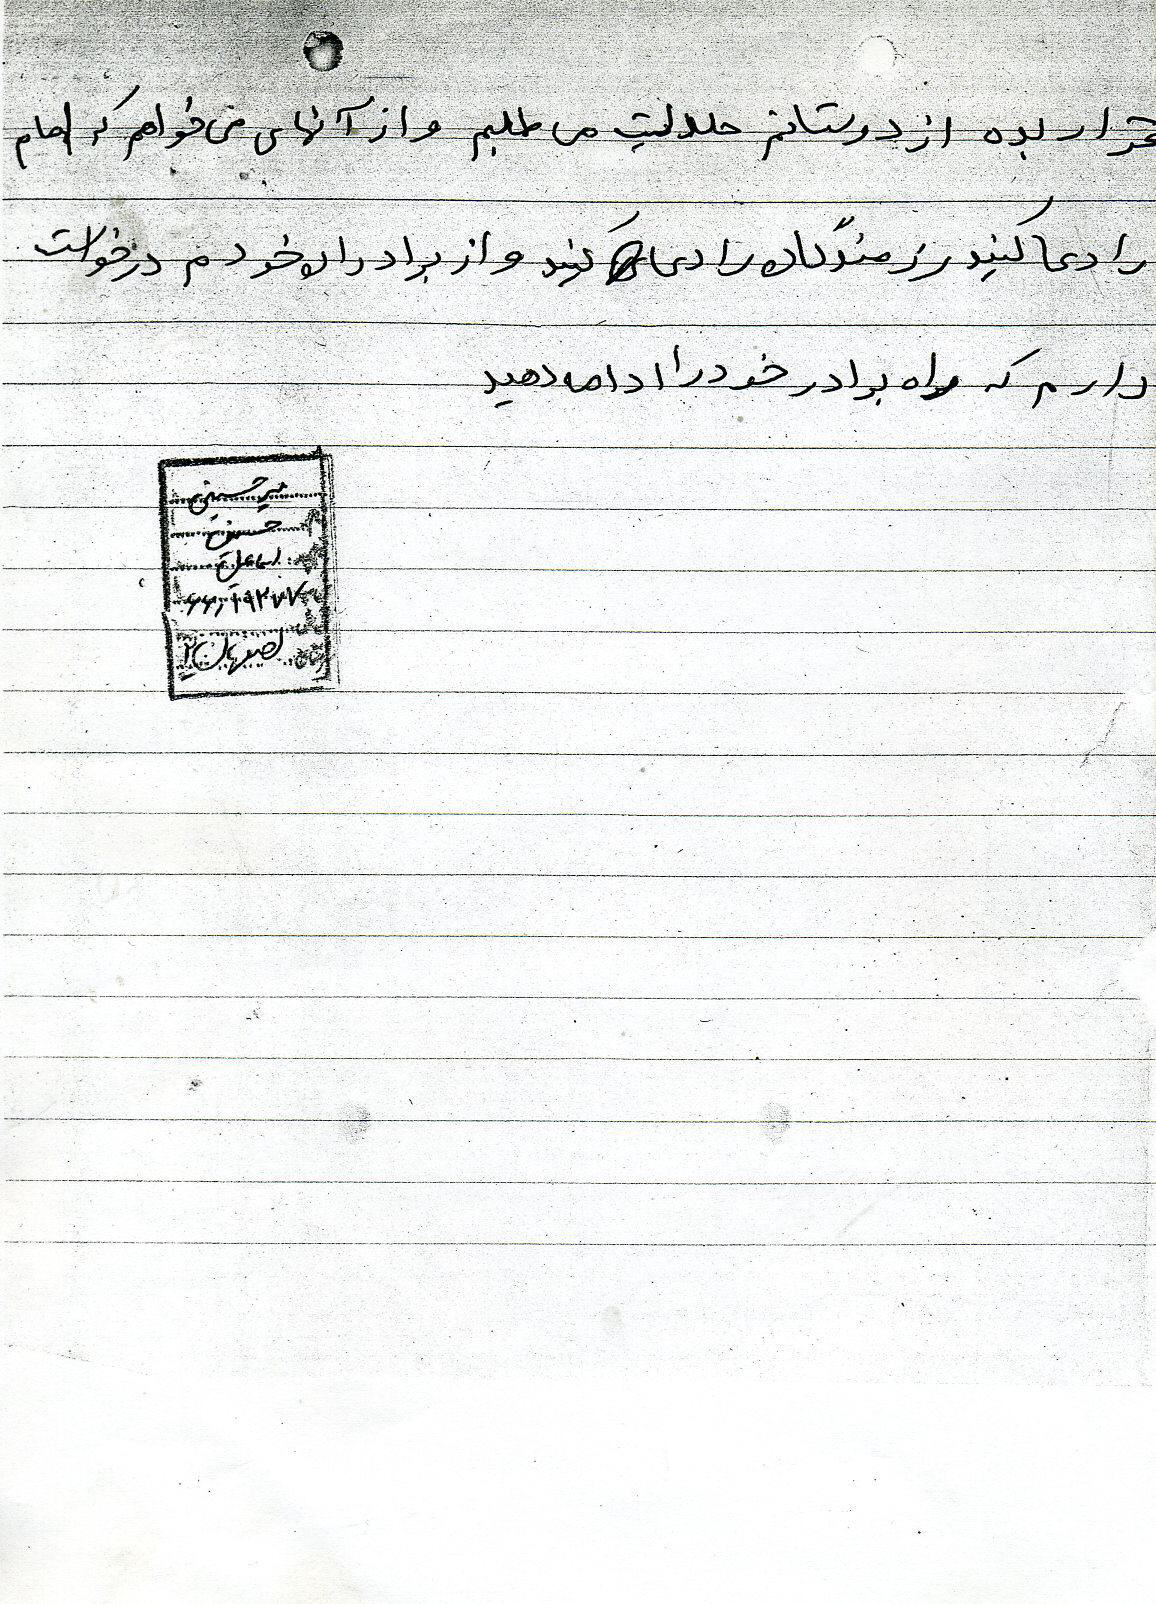 قرار بده از دوستانم حلالیت می طلبم و از آنهای می خواهم که امام
را دعا کنید رزمندگان را دعا کنید و از برادران خودم درخواست
دارم که راه برادر خود را ادامه دهید
میرحسینی
حسن
اسماعیل
اصفهان ۲